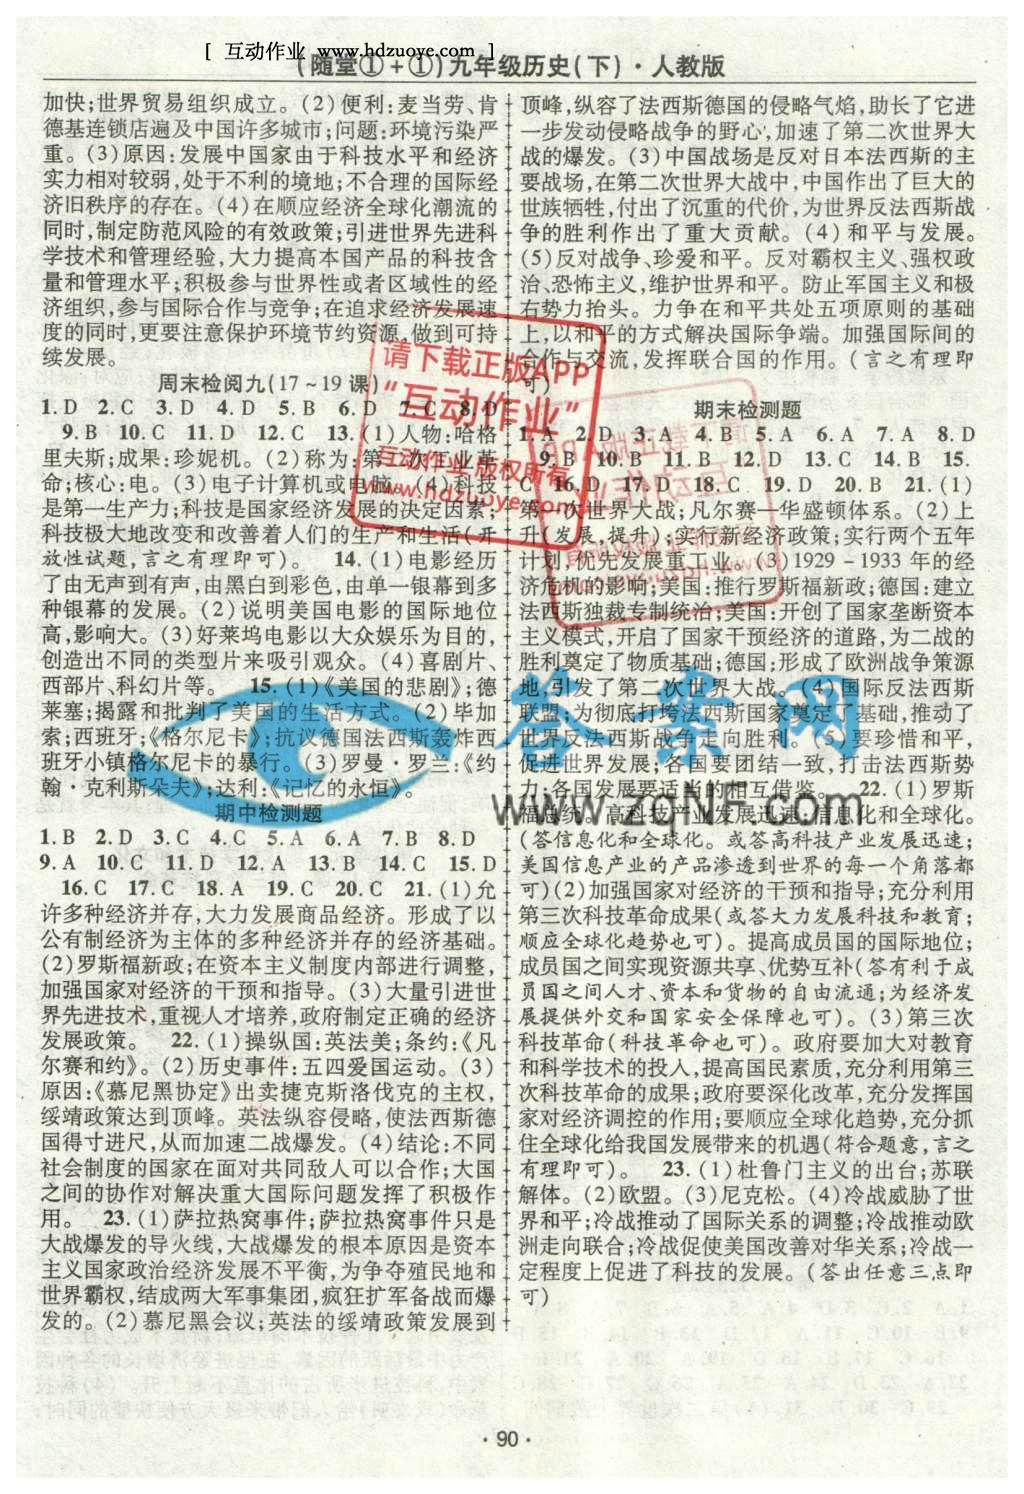 [ 互动作业 www.hdzuoye.com ]
(随堂①+①)九年级历史(下)·人教版
加快;世界贸易组织成立。(2)便利:麦当劳、肯
德基连锁店遍及中国许多城市;问题:环境污染严
重。(3)原因:发展中国家由于科技水平和经济
实力相对较弱,处于不利的境地;不合理的国际经
济旧秩序的存在。(4)在顺应经济全球化潮流的
同时,制定防范风险的有效政策;引进世界先进科
学技术和管理经验,大力提高本国产品的科技含
量和管理水平;积极参与世界性或者区域性的经
济组织,参与国际合作与竞争;在追求经济发展速
度的同时,更要注意保护环境节约资源,做到可持
续发展。
周末检阅九(17~19课)
1.D 2.C 3.D 4.D 5.B 6.D 7.C 8.D
9.B 10.C 11.D 12.C 13.(1)人物:哈格
里夫斯;成果:珍妮机。(2)称为:第二次工业革
命;核心:电。(3)电子计算机或电脑。(4)科技
是第一生产力;科技是国家经济发展的决定因素;
科技极大地改变和改善着人们的生产和生活(开
放性试题,言之有理即可)。 14.(1)电影经历
了由无声到有声,由黑白到彩色,由单一银幕到多
种银幕的发展。(2)说明美国电影的国际地位
高,影响大。(3)好莱坞电影以大众娱乐为目的,
创造出不同的类型片来吸引观众。(4)喜剧片、
西部片、科幻片等。 15.(1)《美国的悲剧》;德
莱塞;揭露和批判了美国的生活方式。(2)毕加
索;西班牙;《格尔尼卡》;抗议德国法西斯轰炸西
班牙小镇格尔尼卡的暴行。(3)罗曼·罗兰:《约
翰·克利斯朵夫》;达利:《记忆的永恒》。
期中检测题
1.B 2.D 3.C 4.C 5.A 6.A 7.B 8.D
9.A 10.C 11.D 12.A 13.B 14.C 15.D
16.C 17.C 18.A 19.C 20.C 21.(1)允
许多种经济并存,大力发展商品经济。形成了以
公有制经济为主体的多种经济并存的经济基础。
(2)罗斯福新政;在资本主义制度内部进行调整,
加强国家对经济的干预和指导。(3)大量引进世
界先进技术,重视人才培养,政府制定正确的经济
发展政策。 22.(1)操纵国:英法美;条约:《凡
尔赛和约》。(2)历史事件:五四爱国运动。(3)
原因:《慕尼黑协定》出卖捷克斯洛伐克的主权,
绥靖政策达到顶峰。英法纵容侵略,使法西斯德
国得寸进尺,从而加速二战爆发。(4)结论:不同
社会制度的国家在面对共同敌人可以合作;大国
之间的协作对解决重大国际问题发挥了积极作
用。 23.(1)萨拉热窝事件;萨拉热窝事件只是
大战爆发的导火线,大战爆发的根本原因是资本
主义国家政治经济发展不平衡,为争夺殖民地和
世界霸权,结成两大军事集团,疯狂扩军备战而爆
发的。(2)慕尼黑会议;英法的绥靖政策发展到
顶峰,纵容了法西斯德国的侵略气焰,助长了它进
一步发动侵略战争的野心,加速了第二次世界大
战的爆发。(3)中国战场是反对日本法西斯的主
要战场,在第二次世界大战中,中国作出了巨大的
世族牺牲,付出了沉重的代价,为世界反法西斯战
争的胜利作出了重大贡献。(4)和平与发展。
(5)反对战争、珍爱和平。反对霸权主义、强权政
治、恐怖主义,维护世界和平。防止军国主义和极
右势力抬头。力争在和平共处五项原则的基础
上,以和平的方式解决国际争端。加强国际间的
合作与交流,发挥联合国的作用。(言之有理即
可)
期末检测题
1.A 2.D 3.A 4.B 5.A 6.A 7.A 8.D
9.B 10.B 11.B 12.D 13.C 14.B 15.
C 16.D 17.D 18.C 19.D 20.B 21.(1)
第一次世界大战;凡尔赛—华盛顿体系。(2)上
升(发展,提升);实行新经济政策;实行两个五年
计划,优先发展重工业。(3)1929-1933年的经
济危机的影响;美国:推行罗斯福新政;德国:建立
法西斯独裁专制统治;美国:开创了国家垄断资本
主义模式,开启了国家干预经济的道路,为二战的
胜利奠定了物质基础;德国;形成了欧洲战争策源
地,引发了第二次世界大战。(4)国际反法西斯
联盟;为彻底打垮法西斯国家奠定了基础,推动了
世界反法西斯战争走向胜利。(5)要珍惜和平,
促进世界发展;各国要团结一致,打击法西斯势
力;各国发展要适当的相互借鉴。 22.(1)罗斯
福总统。高科技产业发展迅速;信息化和全球化。
(答信息化和全球化。或答高科技产业发展迅速;
美国信息产业的产品渗透到世界的每一个角落都
可)(2)加强国家对经济的干预和指导;充分利用
第三次科技革命成果(或答大力发展科技和教育;
顺应全球化趋势也可)。提高成员国的国际地位;
成员国之间实现资源共享、优势互补(答有利于成
员国之间人才、资本和货物的自由流通;为经济发
展提供外交和国家安全保障也可)。(3)第三次
科技革命(科技革命也可)。政府要加大对教育
和科学技术的投人,提高国民素质,充分利用第三
次科技革命的成果;政府要深化改革,充分发挥国
家对经济调控的作用;要顺应全球化趋势,充分抓
住全球化给我国发展带来的机遇(符合题意,言之
有理即可)。 23.(1)杜鲁门主义的出台;苏联
解体。(2)欧盟。(3)尼克松。(4)冷战威胁了世
界和平;冷战推动了国际关系的调整;冷战推动欧
洲走向联合;冷战促使美国改善对华关系;冷战一
定程度上促进了科技的发展。(答出任意三点即
可)
请下载正版APP
“互动作业”
互动作业 版权所有
www.hdzuoye.com
答案网
www.zqNF.com
·90·